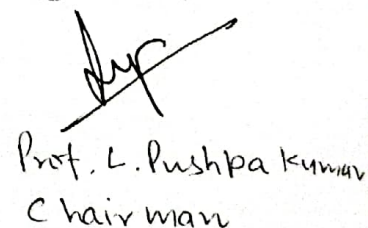 Prof. L. Pushpa Kumar
Chairman